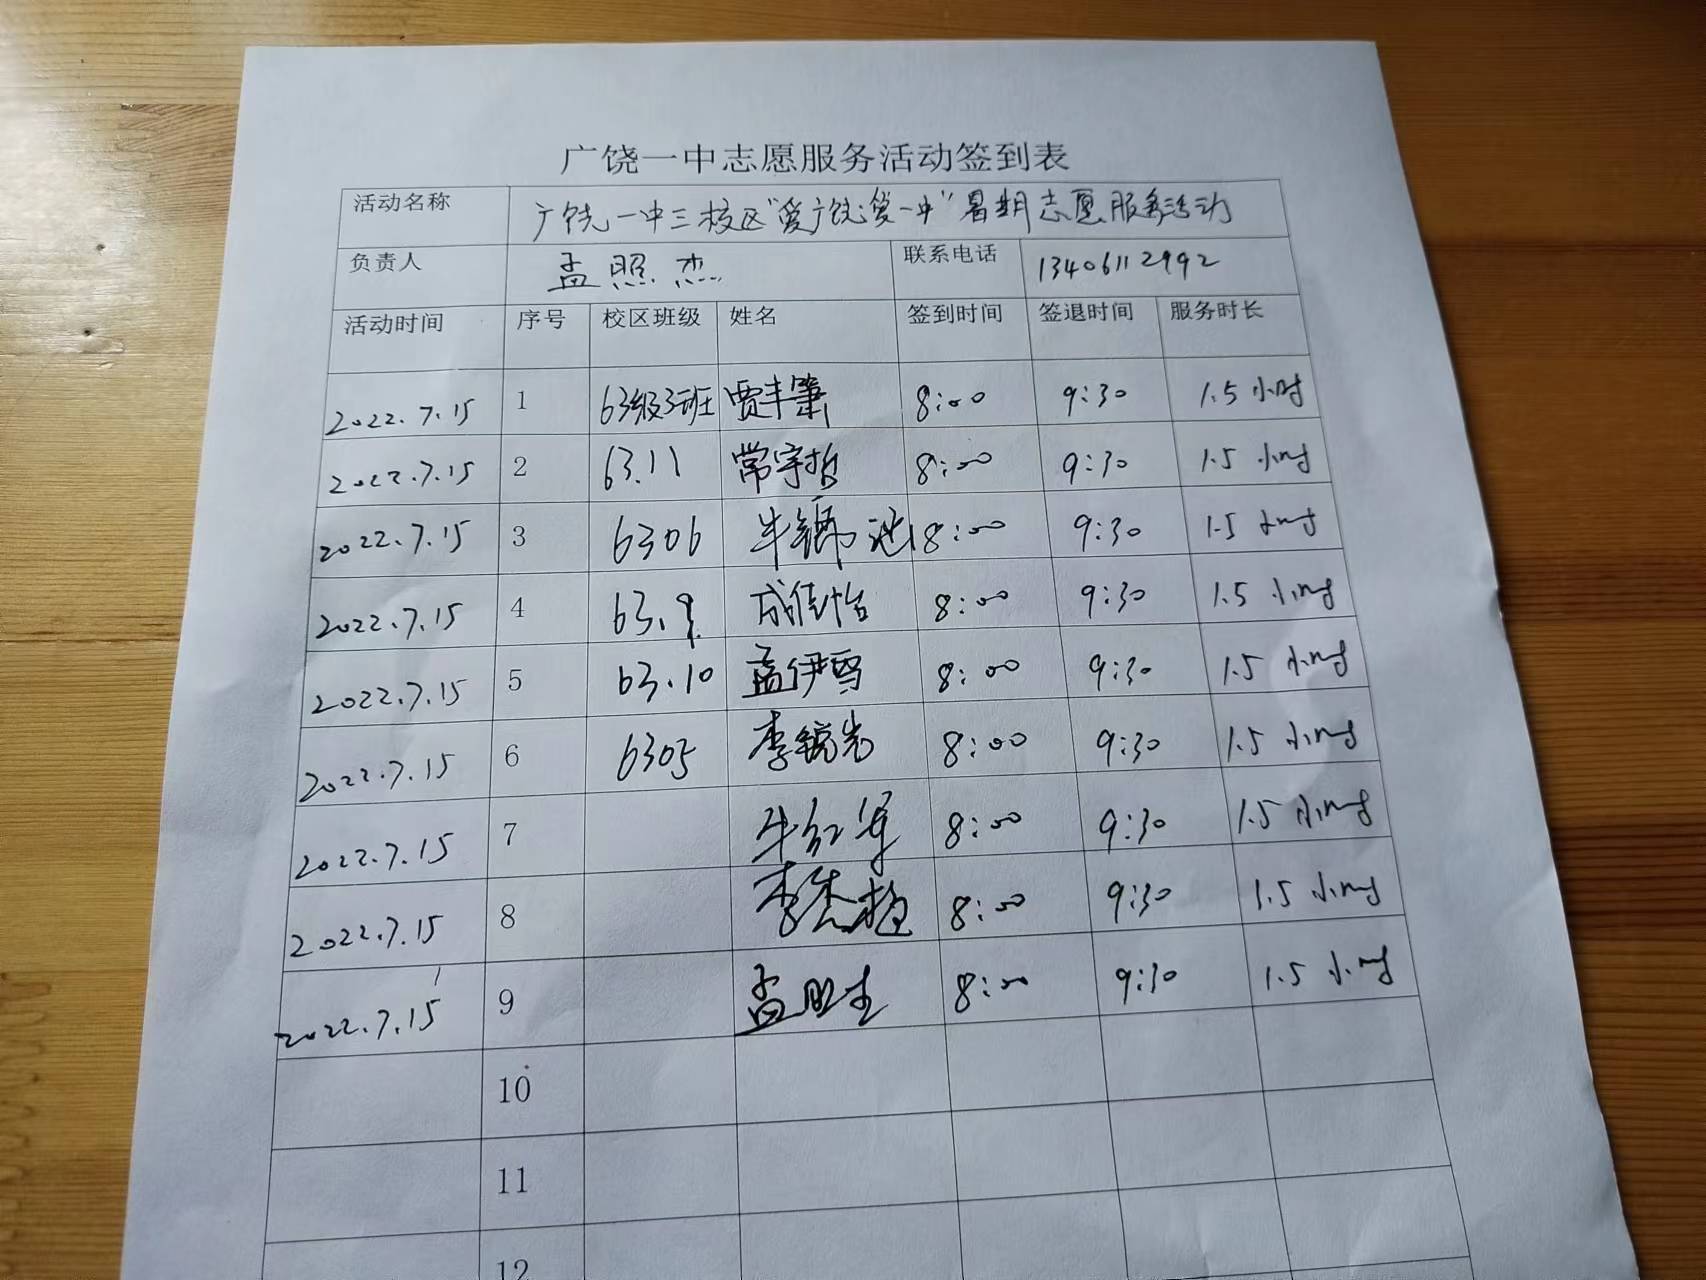 广饶一中志愿服务活动签到表
活动名称 广饶一中三校区"爱广饶爱一中"暑期志愿服务活动
负责人 孟照杰 联系电话 13406112992
活动时间 序号 校区班级 姓名 签到时间 签退时间 服务时长
2022.7.15 1 63级3班 贾丰箫 8:00 9:30 1.5小时
2022.7.15 2 63.11 常宇哲 8:00 9:30 1.5小时
2022.7.15 3 6306 牛 8:00 9:30 1.5小时
2022.7.15 4 63.9 成佳怡 8:00 9:30 1.5小时
2022.7.15 5 63.10 孟伊雪 8:00 9:30 1.5小时
2022.7.15 6 6305 李锐光 8:00 9:30 1.5小时
2022.7.15 7 牛红军 8:00 9:30 1.5小时
2022.7.15 8 李 8:00 9:30 1.5小时
2022.7.15 9 孟 8:00 9:30 1.5小时
10
11
12